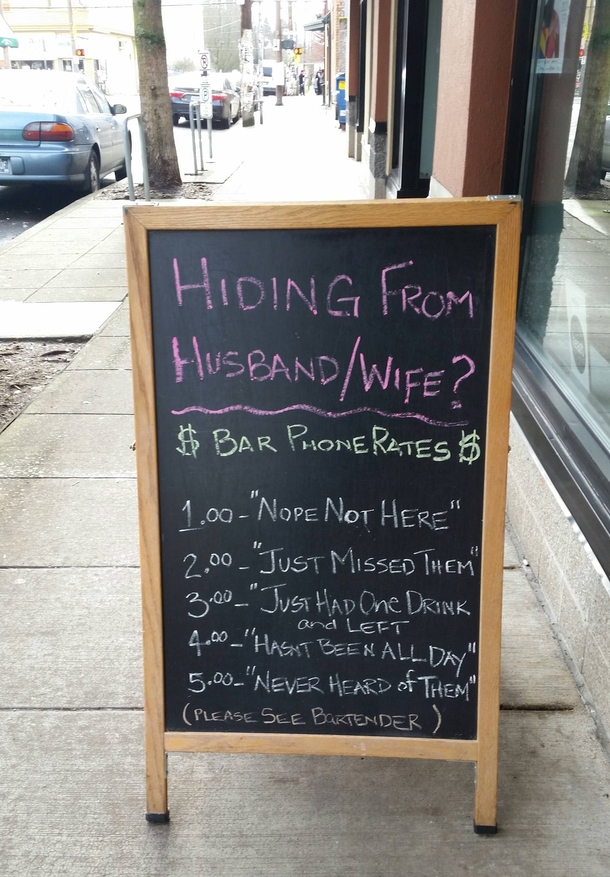 HIDING FROM
HUSBAND/WIFE?
$ BAR PHONE RATES $
1.00-"NOPE NOT HERE"
2.00-"JUST MISSED THEM"
3.00-"JUST HAD ONE DRINK
and LEFT
4.00-"HASNT BEEN ALL DAY"
5.00-"NEVER HEARD of THEM"
(PLEASE SEE BARTENDER)